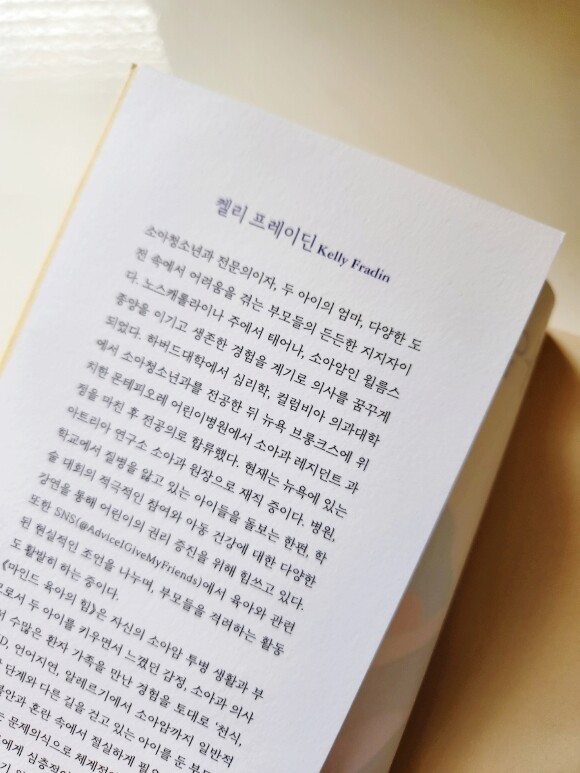 켈리 프레이딘 Kelly Fradin
소아청소년과 전문의이자, 두 아이의 엄마, 다양한 도
전 속에서 어려움을 겪는 부모들의 든든한 지지자이
다. 노스캐롤라이나 주에서 태어나, 소아암인 윌름스
종양을 이기고 생존한 경험을 계기로 의사를 꿈꾸게
되었다. 하버드대학에서 심리학, 컬럼비아 의과대학
에서 소아청소년과를 전공한 뒤 뉴욕 브롱크스에 위
치한 몬테피오레 어린이병원에서 소아과 레지던트 과
정을 마친 후 전공의로 합류했다. 현재는 뉴욕에 있는
아트리아 연구소 소아과 원장으로 재직 중이다. 병원,
학교에서 질병을 앓고 있는 아이들을 돌보는 한편, 학
술 대회의 적극적인 참여와 아동 건강에 대한 다양한
강연을 통해 어린이의 권리 증진을 위해 힘쓰고 있다.
또한 SNS(@AdviceIGiveMyFriends)에서 육아와 관련
된 현실적인 조언을 나누며, 부모들을 격려하는 활동
도 활발히 하는 중이다.
《마인드 육아의 힘》은 자신의 소아암 투병 생활과 부
모로서 두 아이를 키우면서 느꼈던 감정, 소아과 의사
수많은 환자 가족을 만난 경험을 토대로 '천식,
언어지연, 알레르기에서 소아암까지 일반적
단계와 다른 길을 걷고 있는 아이를 둔 부모
혼란 속에서 절실하게
문제의식으로
심층적